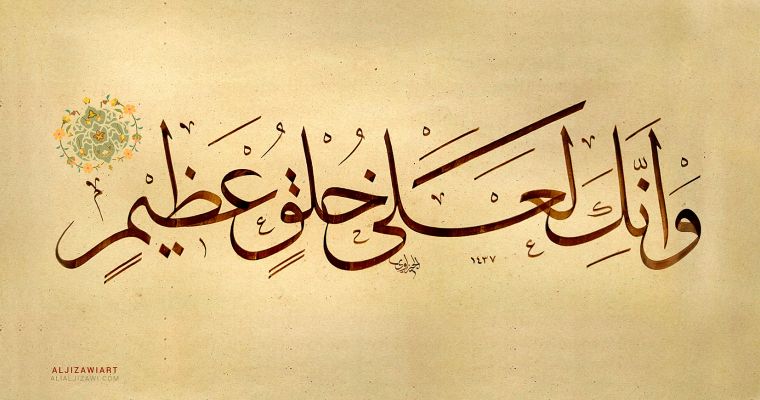 وَإِنَّكَ لَعَلَى خُلُقٍ عَظِيمٍ
١٤٣٧
ALJIZAWIART
ALIALJIZAWI.COM